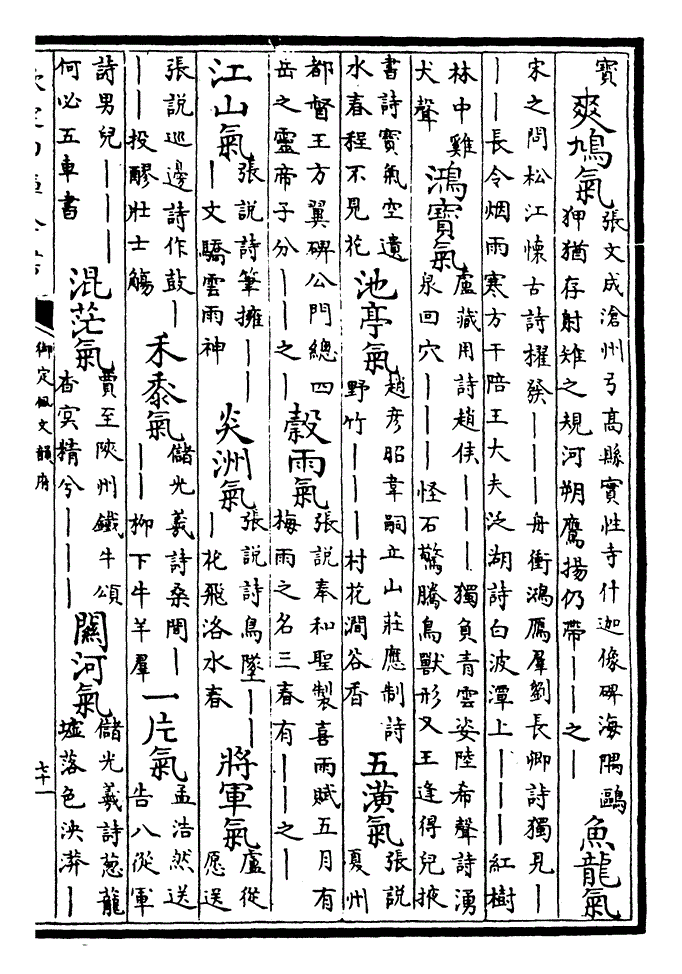 寶 爽鳩氣 張文成滄州弓高縣實性寺什迦像碑海隅鷗狎猶存射雉之規河朔鷹揚仍帶——之— 魚龍氣
宋之問松江懷古詩擢發———舟衝鴻鴈羣劉長卿詩獨見—
——長令烟雨寒方干陪王大夫泛湖詩白波潭上———紅樹
林中雞犬聲 鴻寶氣 盧藏用詩趙侯———獨負青雲姿陸希聲詩湧泉回穴———怪石驚騰鳥獸形又王逢得兒掖
書詩寶氣空遺水春程不見花 池亭氣 趙彦昭韋嗣立山莊應制詩野竹———村花澗谷香 五潢氣 張說夏州
都督王方翼碑公門總四岳之靈帝子分——之— 穀雨氣 張說奉和聖製喜雨賦五月有梅雨之名三春有——之—
江山氣 張說詩筆擁———文驕雲雨神 炎洲氣 張說詩鳥墜———花飛洛水春 將軍氣 盧從愿送
張說巡邊詩作鼓———投醪壯士觴 禾黍氣 儲光羲詩桑間———柳下牛羊羣 一片氣 孟浩然送告八從軍
詩男兒———何必五車書 混茫氣 賈至陝州鐵牛頌杳冥精兮——— 關河氣 儲光羲詩蔥蘢墟落色泱漭—
御定佩文韻府
七十一